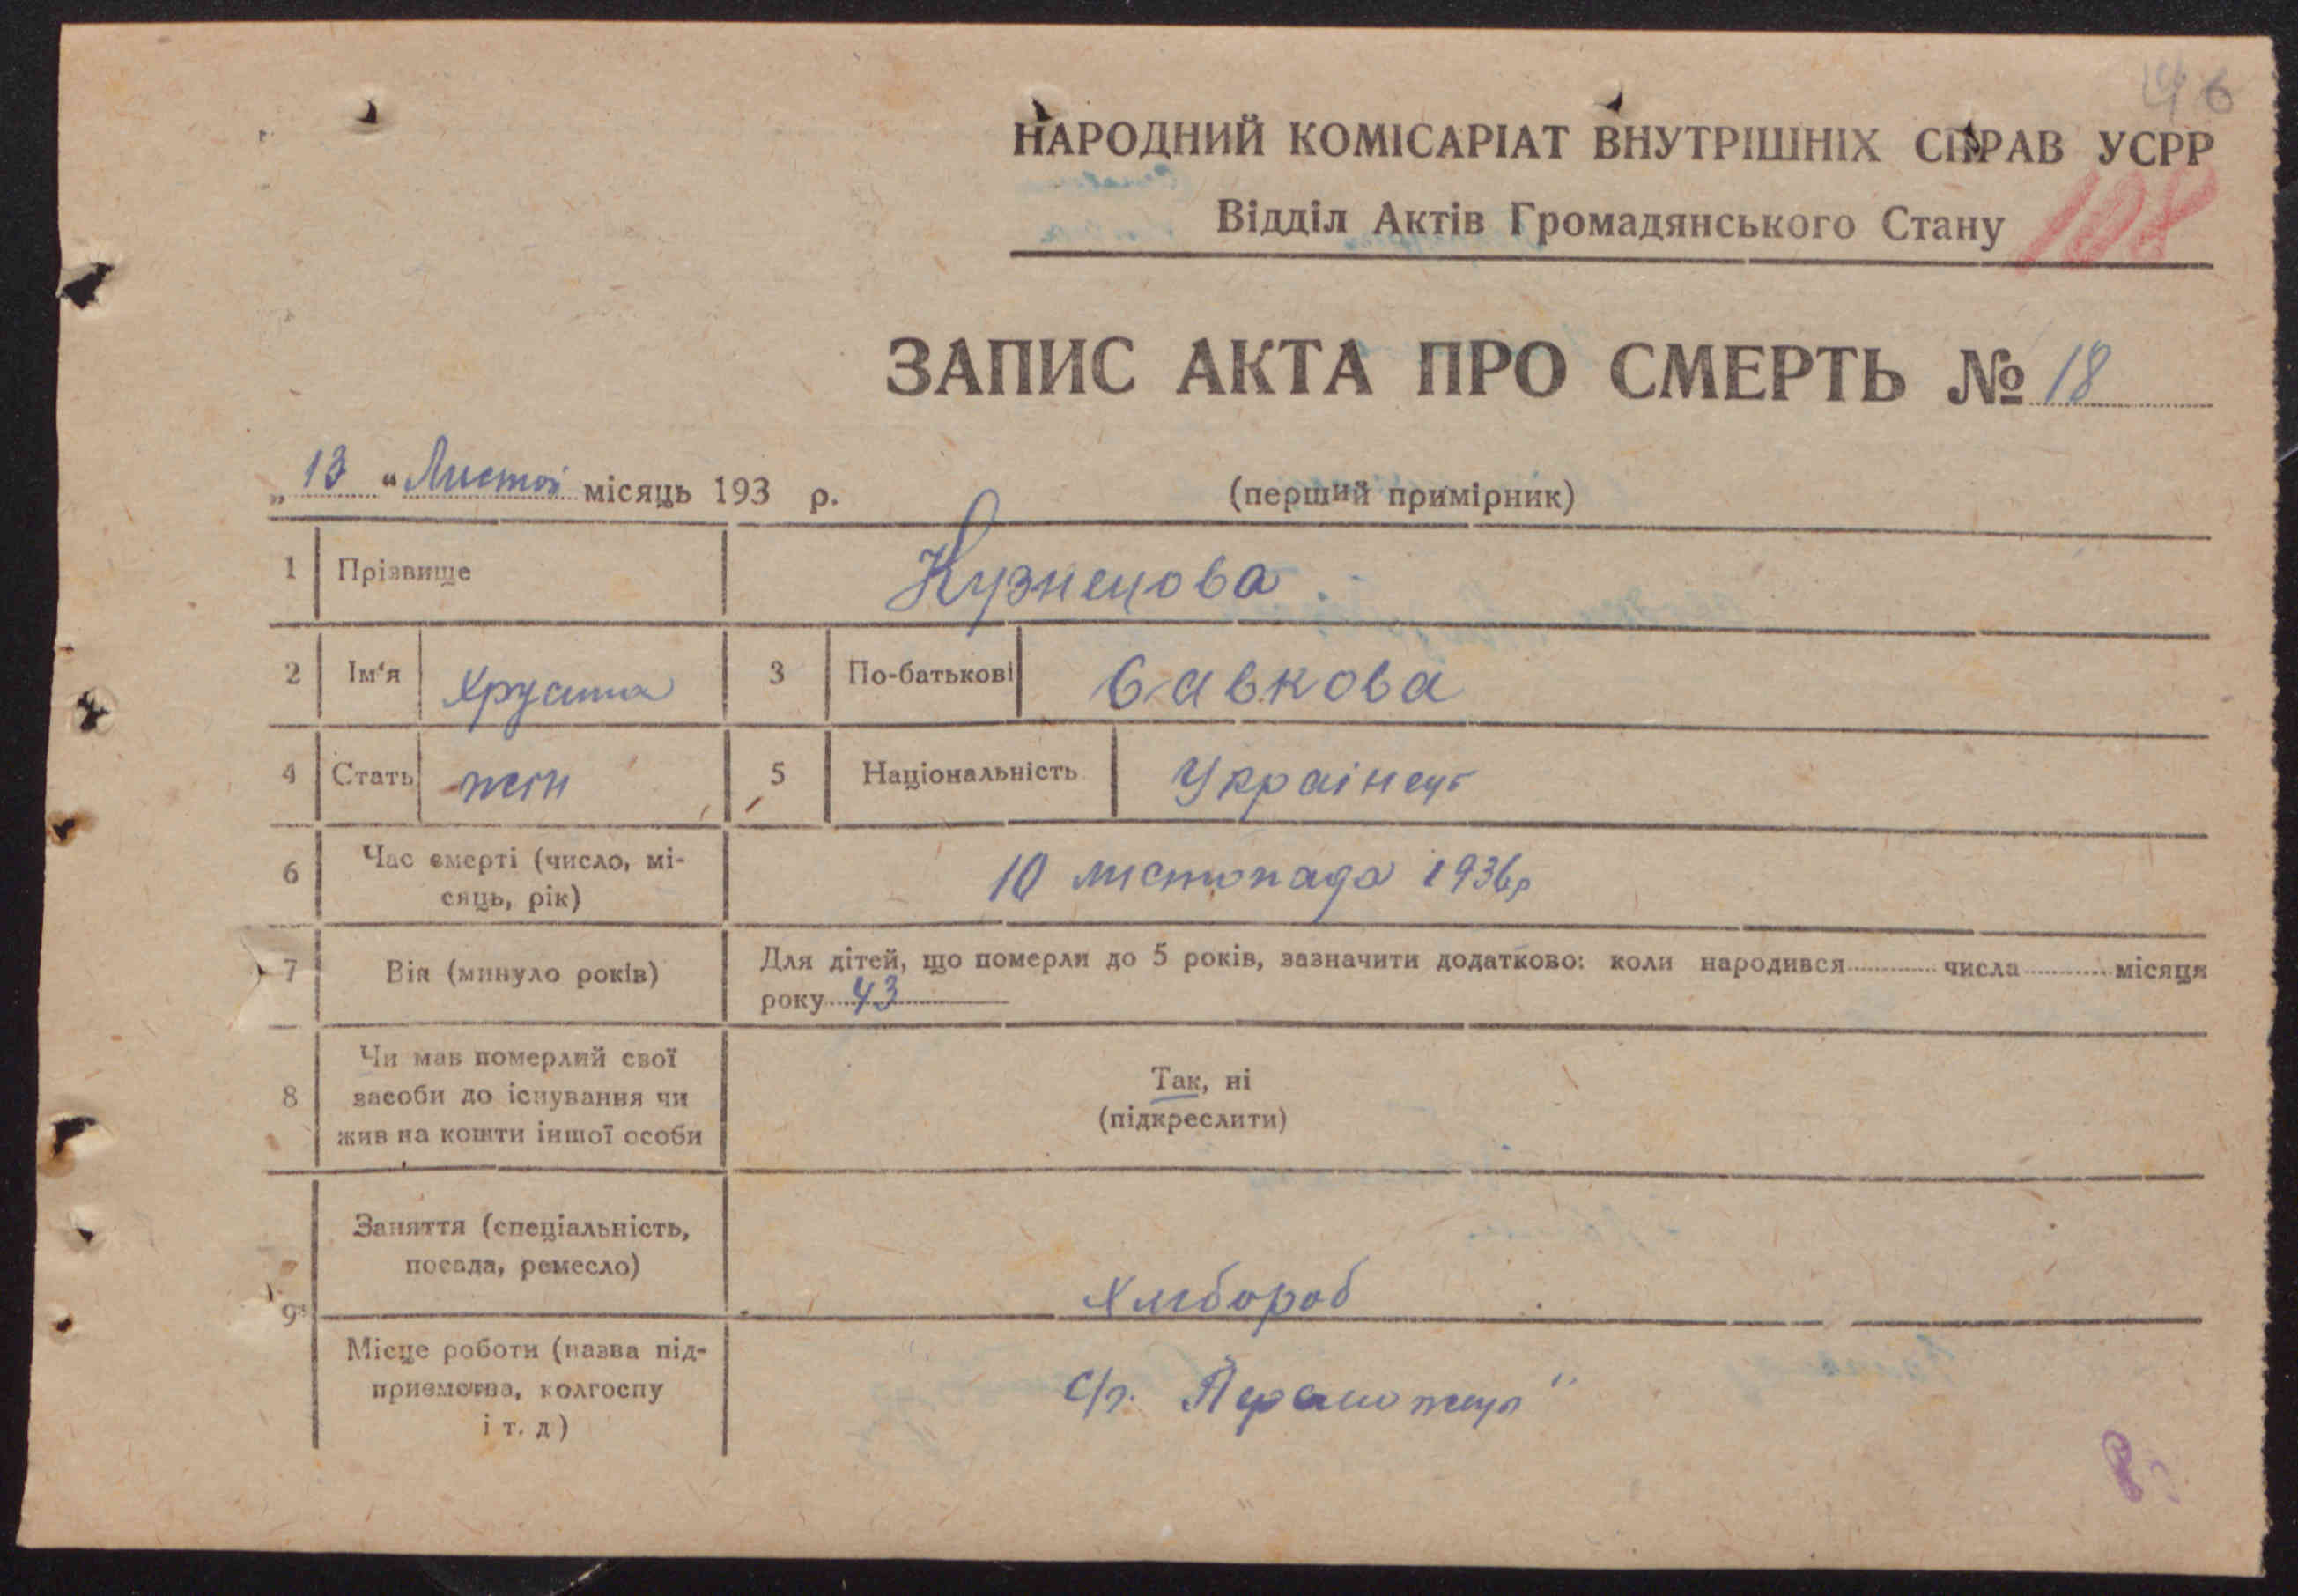 46
НАРОДНИЙ КОМІСАРІАТ ВНУТРІШНІХ СПРАВ УСРР
Відділ Актів Громадянського Стану
108
ЗАПИС АКТА ПРО СМЕРТЬ № 18
„ 13 “ Листоп місяць 193 р. (перший примірник)
1 Прізвище Кузнецова
2 Ім'я 3 По-батькові Савкова
4 Стать жін 5 Національність Українец
6 Час смерті (число, мі-
сяць, рік) 10 листопада 1936р
7 Вік (минуло років) Для дітей, що померли до 5 років, зазначити додатково: коли народився числа місяця
року 43
8 Чи мав померлий свої
засоби до існування чи
жив на кошти іншої особи
Так, ні
(підкреслити)
9 Заняття (спеціальність,
посада, ремесло) Хлібороб
Місце роботи (назва під-
приємства, колгоспу
і т. д)